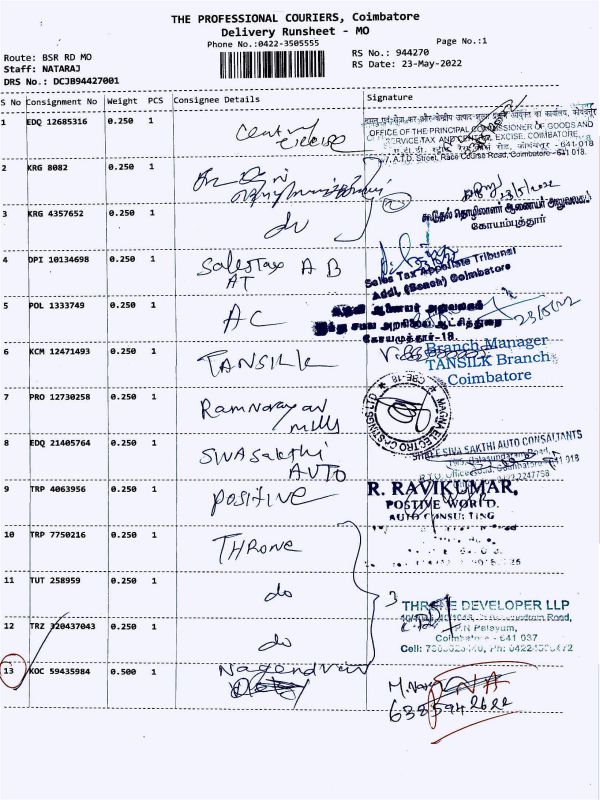 THE PROFESSIONAL COURIERS, Coimbatore
Delivery Runsheet - MO
Phone No.:0422-3505555
Page No.:1
Route: BSR RD MO
RS No.: 944270
Staff: NATARAJ
RS Date: 23-May-2022
DRS No.: DCJB94427001
S No Consignment No Weight PCS Consignee Details Signature
1 EDQ 12685316 0.250 1 Central Excise
OFFICE OF THE PRINCIPAL COMMISSIONER OF GOODS AND
SERVICE TAX AND CENTRAL EXCISE, COIMBATORE,
A.T.D. Street, Race Course Road, Coimbatore - 641 018.
2 KRG 8082 0.250 1
23/5/2022
3 KRG 4357652 0.250 1 do
கூடுதல் தொழிலாளர் ஆணையர் அலுவலகம்
கோயம்புத்தூர்
4 DPI 10134698 0.250 1 Sales Tax A B
AT
Sales Tax Appellate Tribunal
Addl. (Bench) Coimbatore
5 POL 1333749 0.250 1 AC
உதவி ஆணையர் அலுவலகம்
இந்து சமய அறநிலைய ஆட்சித்துறை
கோயமுத்தூர்-18.
23/5/22
6 KCM 12471493 0.250 1 TANSILK
Branch Manager
TANSILK Branch
Coimbatore
7 PRO 12730258 0.250 1 Ramnarayan
mills
MAGNA ELECTRO CASTINGS LTD
CBE-18
8 EDQ 21405764 0.250 1 SWASakthi
AUTO
SREE SIVA SAKTHI AUTO CONSULTANTS
9 TRP 4063956 0.250 1 positive
R. RAVIKUMAR,
POSTIVE WORLD.
AUTO CONSULTING
10 TRP 7750216 0.250 1 THRONE
11 TUT 258959 0.250 1 do
3
THRONE DEVELOPER LLP
12 TRZ 320437043 0.250 1 do
P.N Palayam,
Coimbatore - 641 037
13 KOC 59435984 0.500 1
638594 2622